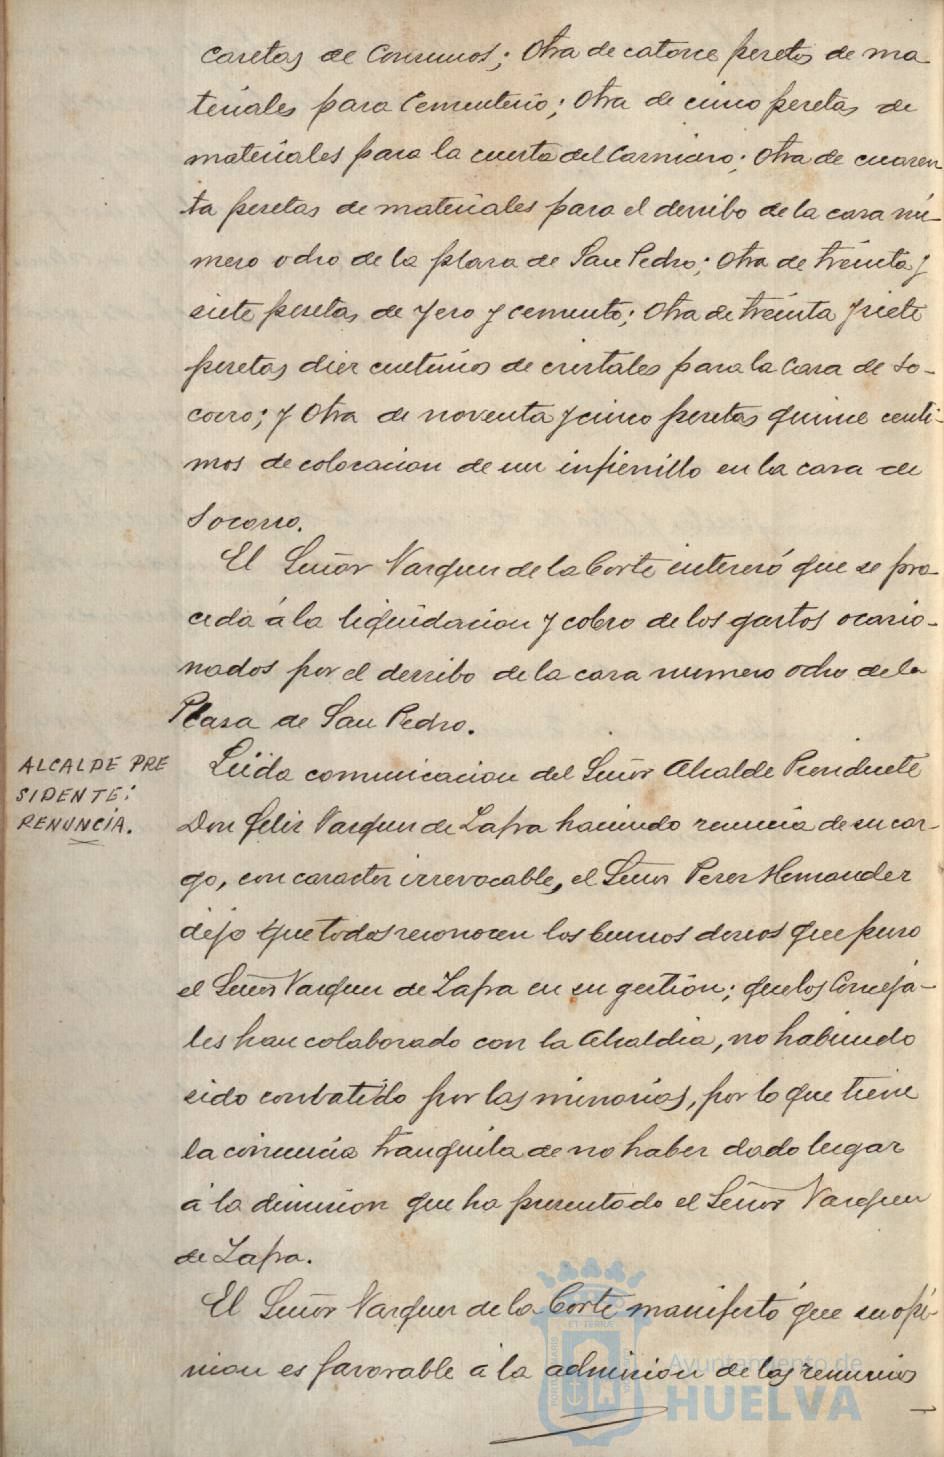 casetas de Consumos; Otra de catorce pesetas de ma-
teriales para Cementerio; Otra de cinco pesetas de
materiales para la cuesta del Carnicero; Otra de cuaren
ta pesetas de materiales para el derribo de la casa nú-
mero ocho de la plaza de San Pedro; Otra de treinta y
siete pesetas de yeso y cemento; Otra de treinta y siete
pesetas diez centimos de cristales para la Casa de So-
corro; y Otra de noventa y cinco pesetas quince centi-
mos de colocacion de un infiernillo en la casa de
Socorro.
El Señor Vazquez de la Corte interesó que se pro-
ceda á la liquidacion y cobro de los gastos ocasio-
nados por el derribo de la casa numero ocho de la
Plaza de San Pedro.
ALCALDE PRE
SIDENTE:
RENUNCIA.
Leida comunicacion del Señor Alcalde Presidente
Don Felix Vazquez de Zafra haciendo renuncia de su car-
go, con caracter irrevocable, el Señor Perez Hernandez
dijo que todos reconocen los buenos deseos que puso
el Señor Vazquez de Zafra en su gestión; que los Conceja-
les han colaborado con la Alcaldia, no habiendo
sido conbatido por las minorias, por lo que tiene
la conciencia tranquila de no haber dado lugar
á la dimision que ha presentado el Señor Vazquez
de Zafra.
El Señor Vazquez de la Corte manifestó que su opi-
nion es favorable á la admision de las renuncias
Ayuntamiento de
HUELVA